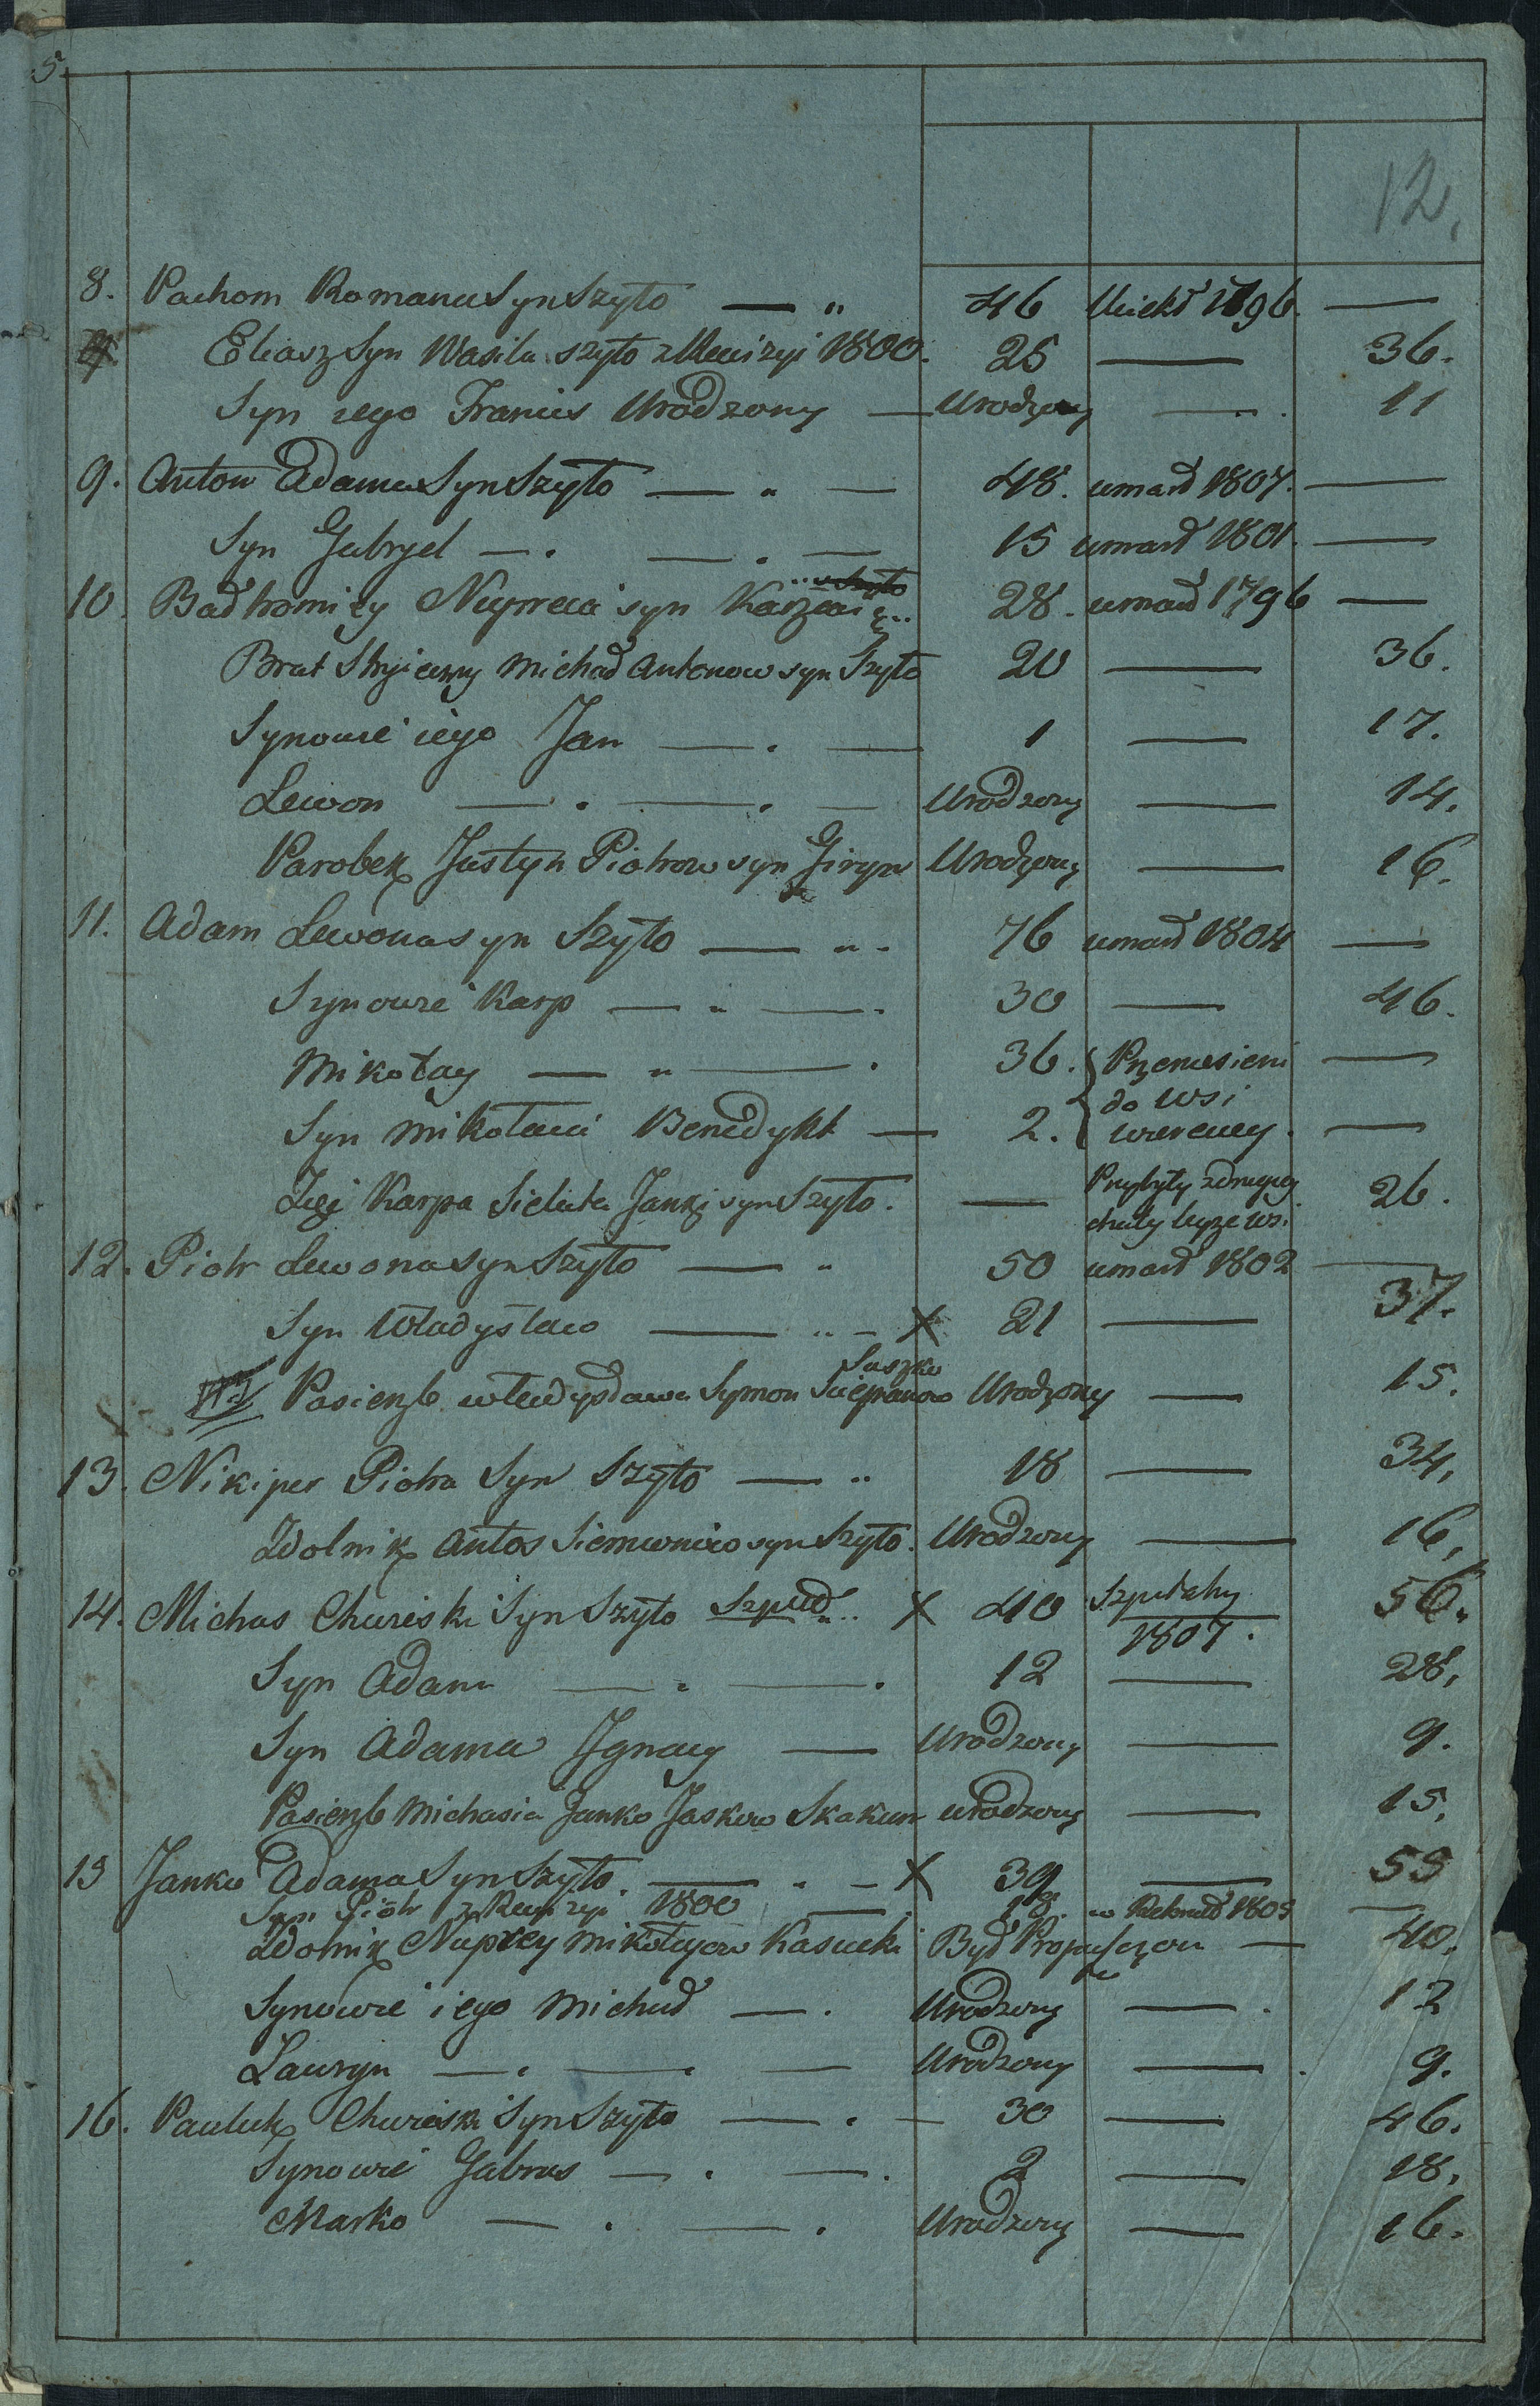 5.
12.
8. Pachom Romana Syn Szyło — „ 46 Uciekł 1796. —
Eliasz Syn Wasila Szyło z Rewizyi 1800. 25 — 36.
Syn iego Francis Urodzony — Urodzony — 11
9. Anton Adama Syn Szyło — „ — 48. umarł 1807. —
Syn Gabryel — . — . — 15 umarł 1801. —
10 Bałtromiey syn 28. umarł 1796 —
Brat Stryieczny Michał Antonow syn Szyło 20 — 36.
Synowie iego Jan — . — 1 — 17.
Lewon — . — . — Urodzony — 14.
Parobek Justyn Piotrow syn Giryn Urodzony — 16.
11. Adam Lewona syn Szyło — „ - 76 umarł 1804 —
Synowie Karp — „ — . 30 — 46.
Mikołay — „ — . 36. Przeniesieni —
do wsi
Syn Mikołaia Benedykt — 2. —
Zięć Karpa Janki syn Szyło. — Przybyły z drugiey 26.
chaty teyże wsi
12. Piotr Lewona syn Szyło — „ 50 umarł 1802 —
Syn Władysław — „ - X 21 — 37.
Suszko
Pasierzb Władysława Symon Sciepanow Urodzony — 15.
13. Nikiper Piotra Syn Szyło — „ 18 — 34,
Zdolnik Antos syn Szyło. Urodzony — 16,
14. Michas Chwieska Syn Szyło X 40 Szpitalny 56.
1807.
Syn Adam — . — . 12 — 28,
Syn Adama Ignacy — Urodzony — 9.
Pasierzb Michasia Janko Jaskow Skakun urodzony — 15,
15 Janko Adama Syn Szyło. — „ — X 39 — 55
Syn Piotr z Rewizyi 1800 — 18. w Rekruts 1805 —
Zdolnik Naprey Mikołajow Kasucki Był Propuszczon — 40.
Synowie iego Michał — . Urodzony — . 12
Lauryn — . — . — Urodzony — . 9.
16. Pauluk Chwieska Syn Szyło — . — 30 — 46.
Synowie Gabrus — . — . 2 — 18,
Marko — . — . Urodzony — 16.